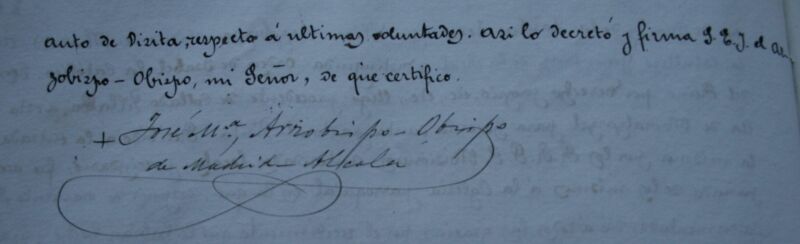 auto de Visita, respecto á ultimas voluntades. Asi lo decretó y firma S. E. I. el Ar-
zobispo-Obispo, mi Señor, de que certifico.
+ José M.ª, Arzobispo-Obispo
de Madrid-Alcalá